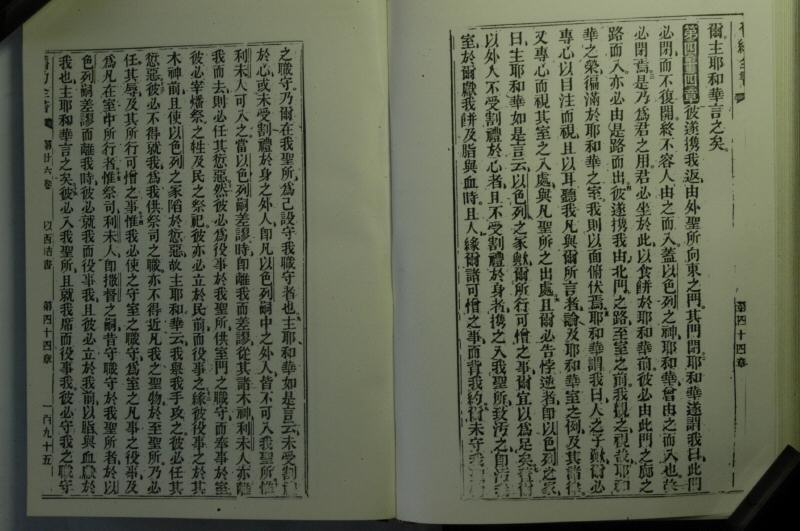 爾主耶和華言之矣
第四十四章彼遂携我返由外聖所向東之門其門閉耶和華遂謂我曰此門
必閉而不復開終不容人由之而入蓋以色列之神耶和華曾由之而入也故
必閉焉是乃爲君之用君必坐於此以食餅於耶和華前彼必由此門之廊之
路而入亦必由是路而出彼遂携我由北門之路至室之前我觀之視哉耶和
華之榮徧滿於耶和華之室我則以面俯伏焉耶和華謂我曰人之子歟爾必
專心以目注而視且以耳聽我凡與爾所言者論及耶和華室之例及其諸律
又專心而視其室之入處與凡聖所之出處且爾必告悖逆者即以色列之家
曰主耶和華如是言云以色列之家歟爾所行可憎之事爾宜以爲足矣
以外人不受割禮於心者且不受割禮於身者携之入我聖所致汚之即
室於爾獻我餅及脂與血時且人緣爾諸可憎之事而背我約爾未守我
第四十四章
之職守乃爾在我聖所爲己設守我職守者也主耶和華如是言云未受割
於心或未受割禮於身之外人即凡以色列嗣中之外人皆不可入我聖所惟
利未人可入之當以色列嗣差謬時即離我而差謬從其諸木神利未人亦離
我而去則必任其愆惡然彼必爲役事於我聖所供室門之職守而奉事於室
彼必宰燔祭之牲及民之祭祀彼亦必立於民前而役事之緣彼役事之於其
木神前且使以色列之家陷於愆惡故主耶和華云我舉我手攻之彼必任其
愆惡彼必不得就我爲我供祭司之職亦不得近凡我之聖物於至聖所乃必
任其辱及其所行可憎之事惟我必使之守室之職守爲室之凡事之役事及
爲凡在室中所行者惟祭司利未人即撒督之嗣昔守職守於我聖所者於以
色列嗣差謬而離我時彼必就我而役事我且彼必立於我前以脂與血獻於
我也主耶和華言之矣彼必入我聖所且就我席而役事我彼必守我之職守
第廿六卷 以西結書 第四十四章 一百九十五